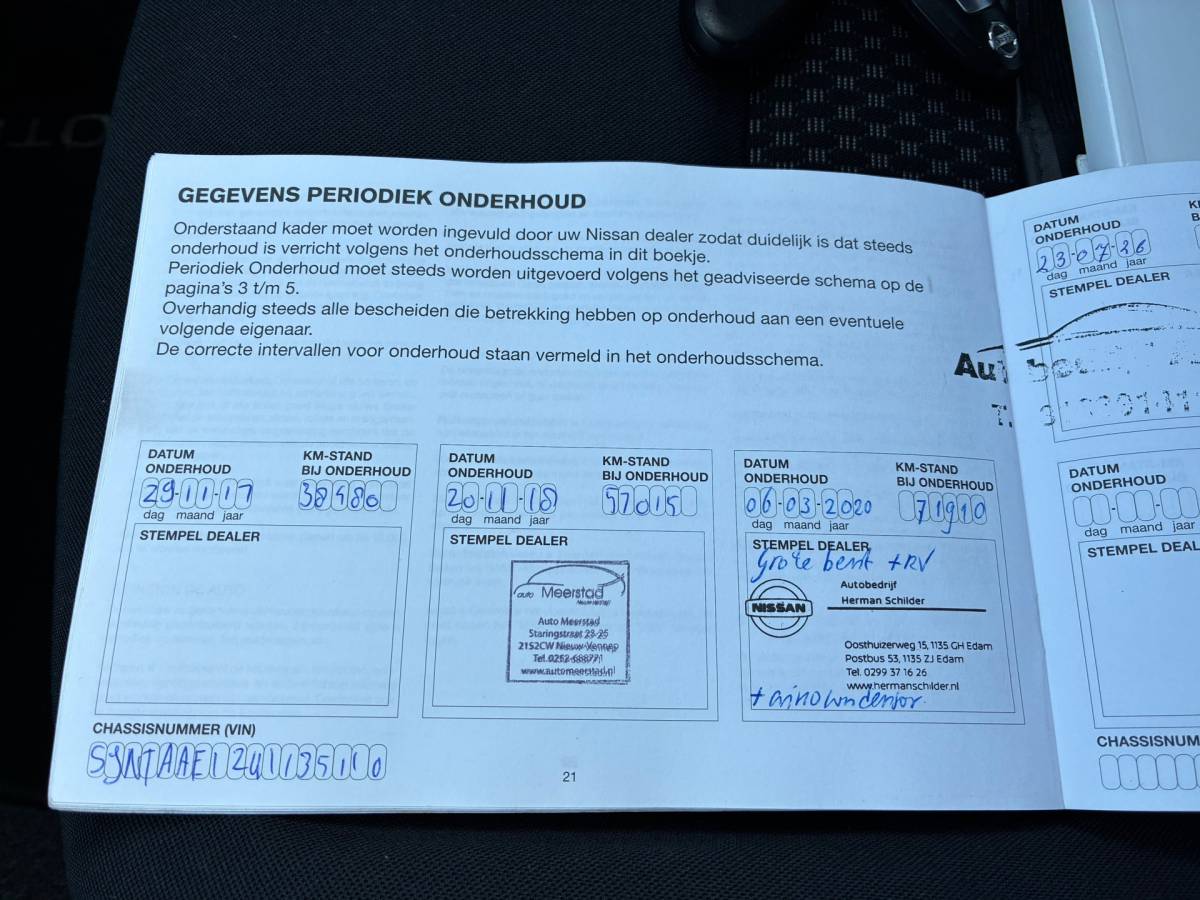 GEGEVENS PERIODIEK ONDERHOUD
Onderstaand kader moet worden ingevuld door uw Nissan dealer zodat duidelijk is dat steeds
onderhoud is verricht volgens het onderhoudsschema in dit boekje.
Periodiek Onderhoud moet steeds worden uitgevoerd volgens het geadviseerde schema op de
pagina's 3 t/m 5.
Overhandig steeds alle bescheiden die betrekking hebben op onderhoud aan een eventuele
volgende eigenaar.
De correcte intervallen voor onderhoud staan vermeld in het onderhoudsschema.
DATUM
ONDERHOUD
KM-STAND
BIJ ONDERHOUD
29-11-17
38480
dag maand jaar
STEMPEL DEALER
DATUM
ONDERHOUD
KM-STAND
BIJ ONDERHOUD
20-11-18
57015
dag maand jaar
STEMPEL DEALER
auto Meerstad
Auto Meerstad
Staringstraat 23-25
2152CW Nieuw-Vennep
www.automeerstad.nl
DATUM
ONDERHOUD
KM-STAND
BIJ ONDERHOUD
06-03-2020
71910
dag maand jaar
STEMPEL DEALER
Grote beurt +RV
NISSAN
Autobedrijf
Herman Schilder
Oosthuizerweg 15, 1135 GH Edam
Postbus 53, 1135 ZJ Edam
Tel. 0299 37 16 26
www.hermanschilder.nl
CHASSISNUMMER (VIN)
21
DATUM
ONDERHOUD
23-07-26
dag maand jaar
STEMPEL DEALER
DATUM
ONDERHOUD
dag maand jaar
STEMPEL DEAL
CHASSISNUM